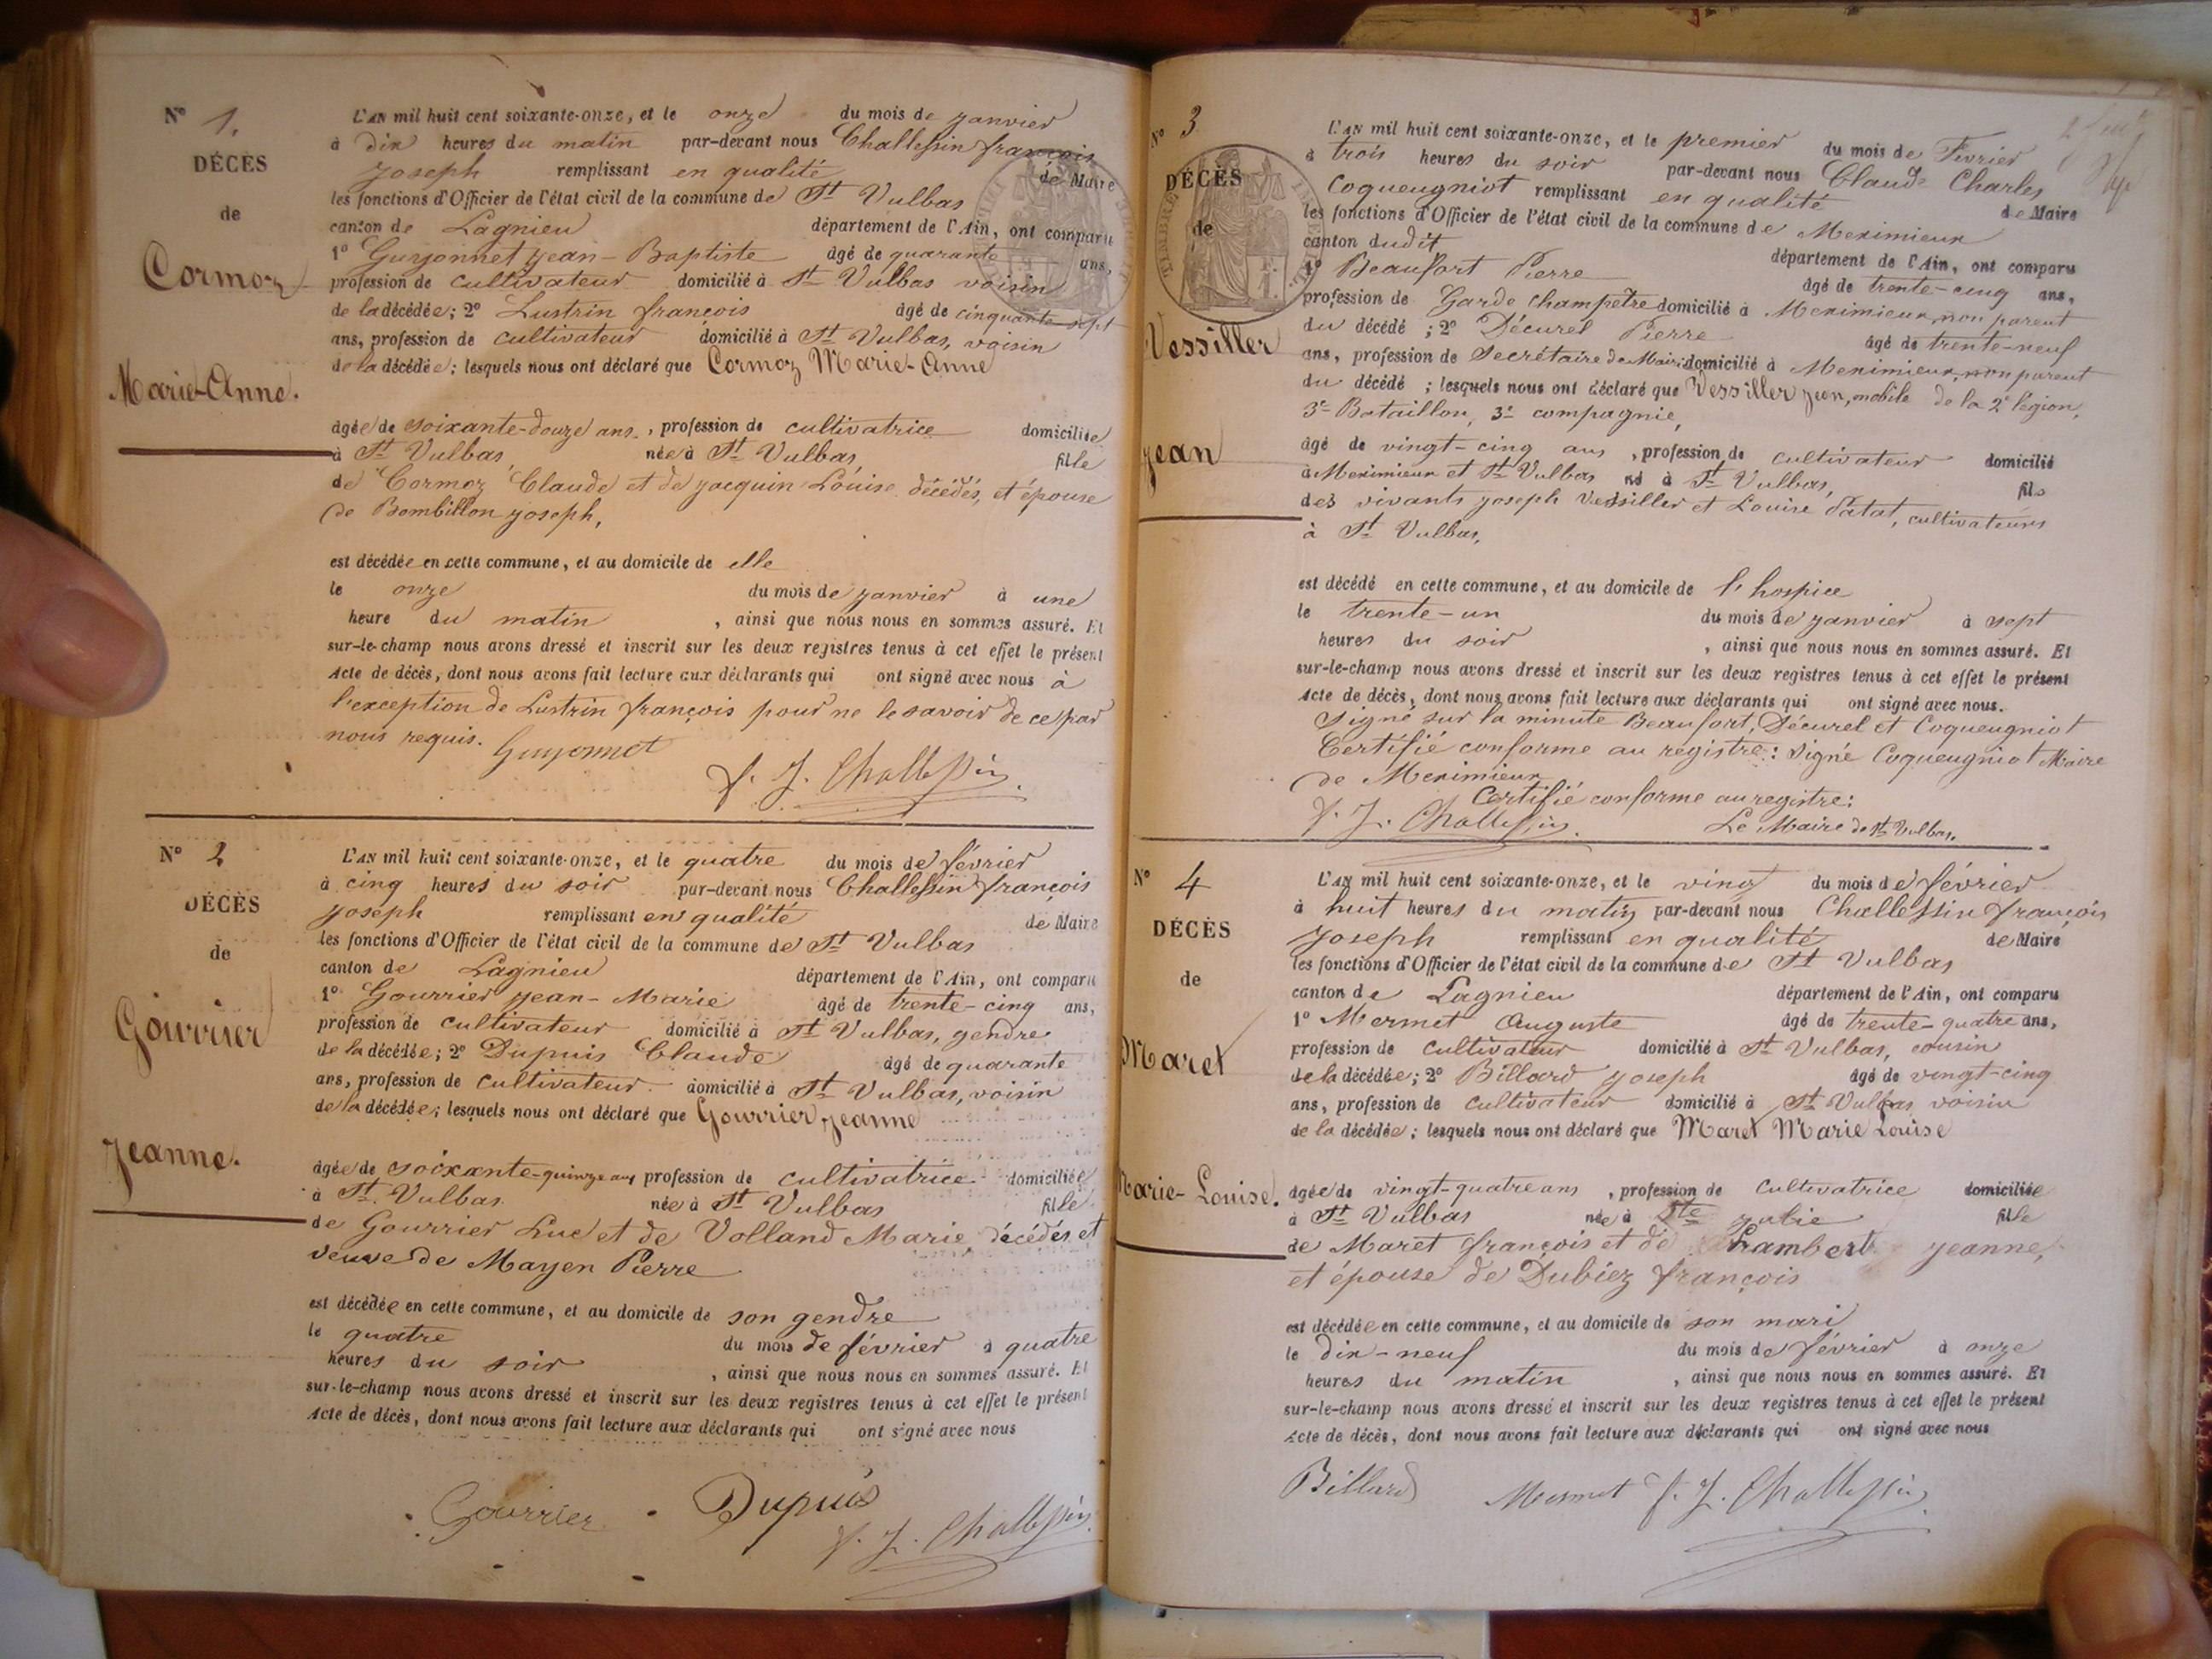 N° 1.
DÉCÈS
de
Cormoz
Marie-Anne.
L'AN mil huit cent soixante-onze, et le onze du mois de janvier
à dix heures du matin par-devant nous Challessin françois
Joseph remplissant en qualité de Maire
les fonctions d'Officier de l'état civil de la commune de St Vulbas
canton de Lagnieu département de l'Ain, ont comparu
1° Guyonnet Jean-Baptiste âgé de quarante ans,
profession de cultivateur domicilié à St Vulbas voisin
de la décédée; 2° Lustrin françois âgé de cinquante-sept
ans, profession de cultivateur domicilié à St Vulbas, voisin
de la décédée; lesquels nous ont déclaré que Cormoz Marie-Anne
âgée de soixante-douze ans, profession de cultivatrice domiciliée
à St Vulbas, née à St Vulbas fille
de Cormoz Claude et de Jacquin Louise décédés, et épouse
de Bombillon Joseph,
est décédée en cette commune, et au domicile de elle
le onze du mois de janvier à une
heure du matin, ainsi que nous nous en sommes assuré. Et
sur-le-champ nous avons dressé et inscrit sur les deux registres tenus à cet effet le présent
Acte de décès, dont nous avons fait lecture aux déclarants qui ont signé avec nous à
l'exception de Lustrin françois pour ne le savoir de ce par
nous requis. Guyonnet
f. J. Challessin
N° 2
DÉCÈS
de
Gourrier
Jeanne.
L'AN mil huit cent soixante-onze, et le quatre du mois de février
à cinq heures du soir par-devant nous Challessin françois
Joseph remplissant en qualité de Maire
les fonctions d'Officier de l'état civil de la commune de St Vulbas
canton de Lagnieu département de l'Ain, ont comparu
1° Gourrier Jean-Marie âgé de trente-cinq ans,
profession de cultivateur domicilié à St Vulbas, gendre
de la décédée; 2° Dupuis Claude âgé de quarante
ans, profession de cultivateur domicilié à St Vulbas, voisin
de la décédée; lesquels nous ont déclaré que Gourrier Jeanne
âgée de soixante-quinze ans profession de cultivatrice domiciliée
à St Vulbas née à St Vulbas fille
de Gourrier Luc et de Volland Marie décédés et
veuve de Mayen Pierre
est décédée en cette commune, et au domicile de son gendre
le quatre du mois de février à quatre
heures du soir, ainsi que nous nous en sommes assuré. Et
sur-le-champ nous avons dressé et inscrit sur les deux registres tenus à cet effet le présent
Acte de décès, dont nous avons fait lecture aux déclarants qui ont signé avec nous
Gourrier Dupuis
f. J. Challessin
N° 3
DÉCÈS
de
Vessiller
Jean
L'AN mil huit cent soixante-onze, et le premier du mois de Février
à trois heures du soir par-devant nous Claude Charles
Coqueugniot remplissant en qualité de Maire
les fonctions d'Officier de l'état civil de la commune de Meximieux
canton dudit département de l'Ain, ont comparu
1° Beaufort Pierre âgé de trente-cinq ans,
profession de Garde champêtre domicilié à Meximieux, non parent
du décédé; 2° Décurel Pierre âgé de trente-neuf
ans, profession de Secrétaire de Mairie domicilié à Meximieux, non parent
du décédé; lesquels nous ont déclaré que Vessiller Jean, mobile de la 2e légion,
3e Bataillon, 3e compagnie,
âgé de vingt-cinq ans, profession de cultivateur domicilié
à Meximieux et St Vulbas né à St Vulbas, fils
des vivants Joseph Vessiller et Louise Patat, cultivateurs
à St Vulbas,
est décédé en cette commune, et au domicile de l'hospice
le trente-un du mois de janvier à sept
heures du soir, ainsi que nous nous en sommes assuré. Et
sur-le-champ nous avons dressé et inscrit sur les deux registres tenus à cet effet le présent
Acte de décès, dont nous avons fait lecture aux déclarants qui ont signé avec nous.
Signé sur la minute Beaufort, Décurel et Coqueugniot
Certifié conforme au registre: Signé Coqueugniot Maire
de Meximieux
Certifié conforme au registre:
f. J. Challessin Le Maire de St Vulbas.
N° 4
DÉCÈS
de
Maret
Marie-Louise.
L'AN mil huit cent soixante-onze, et le vingt du mois de février
à huit heures du matin par-devant nous Challessin françois
Joseph remplissant en qualité de Maire
les fonctions d'Officier de l'état civil de la commune de St Vulbas
canton de Lagnieu département de l'Ain, ont comparu
1° Mermet Auguste âgé de trente-quatre ans,
profession de cultivateur domicilié à St Vulbas, cousin
de la décédée; 2° Billard Joseph âgé de vingt-cinq
ans, profession de cultivateur domicilié à St Vulbas, voisin
de la décédée; lesquels nous ont déclaré que Maret Marie Louise
âgée de vingt-quatre ans, profession de cultivatrice domiciliée
à St Vulbas née à Ste Julie fille
de Maret françois et de Lrambert Jeanne,
et épouse de Dubiez françois
est décédée en cette commune, et au domicile de son mari
le dix-neuf du mois de février à onze
heures du matin, ainsi que nous nous en sommes assuré. Et
sur-le-champ nous avons dressé et inscrit sur les deux registres tenus à cet effet le présent
Acte de décès, dont nous avons fait lecture aux déclarants qui ont signé avec nous
Billard Mermet f. J. Challessin